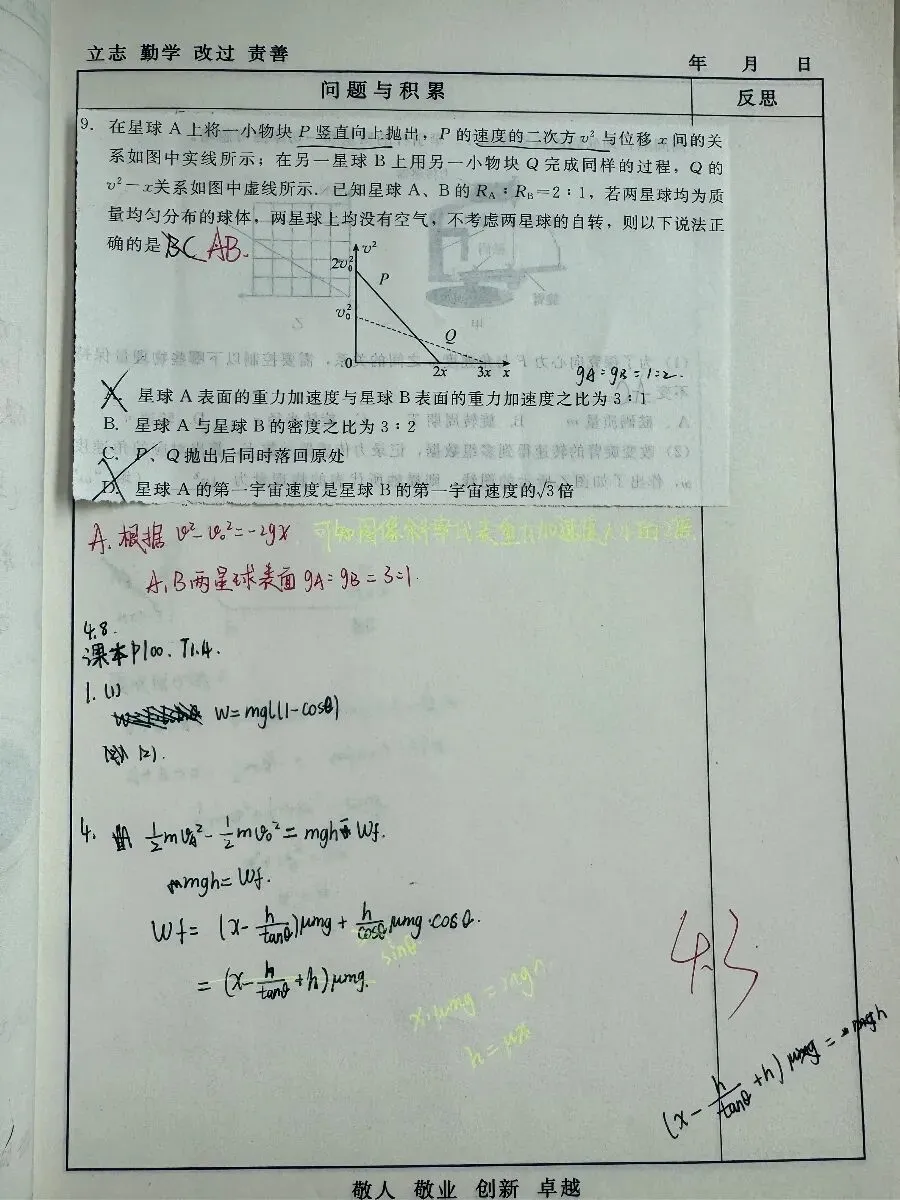 立志 勤学 改过 责善
年 月 日
问题与积累
反思
9. 在星球 A 上将一小物块 P 竖直向上抛出，P 的速度的二次方 v² 与位移 x 间的关
系如图中实线所示；在另一星球 B 上用另一小物块 Q 完成同样的过程，Q 的
v²－x关系如图中虚线所示．已知星球 A、B 的 R_A∶R_B＝2∶1，若两星球均为质
量均匀分布的球体，两星球上均没有空气，不考虑两星球的自转，则以下说法正
确的是 BC AB.
v²
2v₀²
P
v₀²
Q
0 2x 3x x
gA=gB=1=2.
A. 星球 A 表面的重力加速度与星球 B 表面的重力加速度之比为 3∶1
B. 星球 A 与星球 B 的密度之比为 3∶2
C. P、Q 抛出后同时落回原处
D. 星球 A 的第一宇宙速度是星球 B 的第一宇宙速度的√3倍
A. 根据 v²-v₀²=-2gx. 可知图像斜率代表重力加速度大小的2倍.
A,B两星球表面 gA=gB=3=1.
4.8.
课本P100. T1.4.
1. (1)
W=mgl(1-cosθ)
(2).
4. ½mv_A²-½mv₀²=mgh-Wf.
mgh=Wf.
Wf= (x-h/tanθ)μmg+h/cosθ μmg·cosθ.
sinθ.
= (x-h/tanθ+h)μmg.
x·μmg=mgh
h=μx
4.3
(x-h/tanθ+h)μmg=mgh
敬人 敬业 创新 卓越